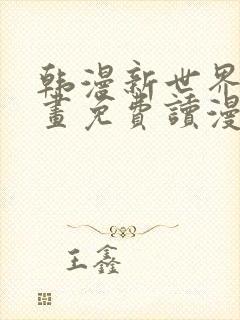 韩漫新世界
畫免費讀漫
王鑫